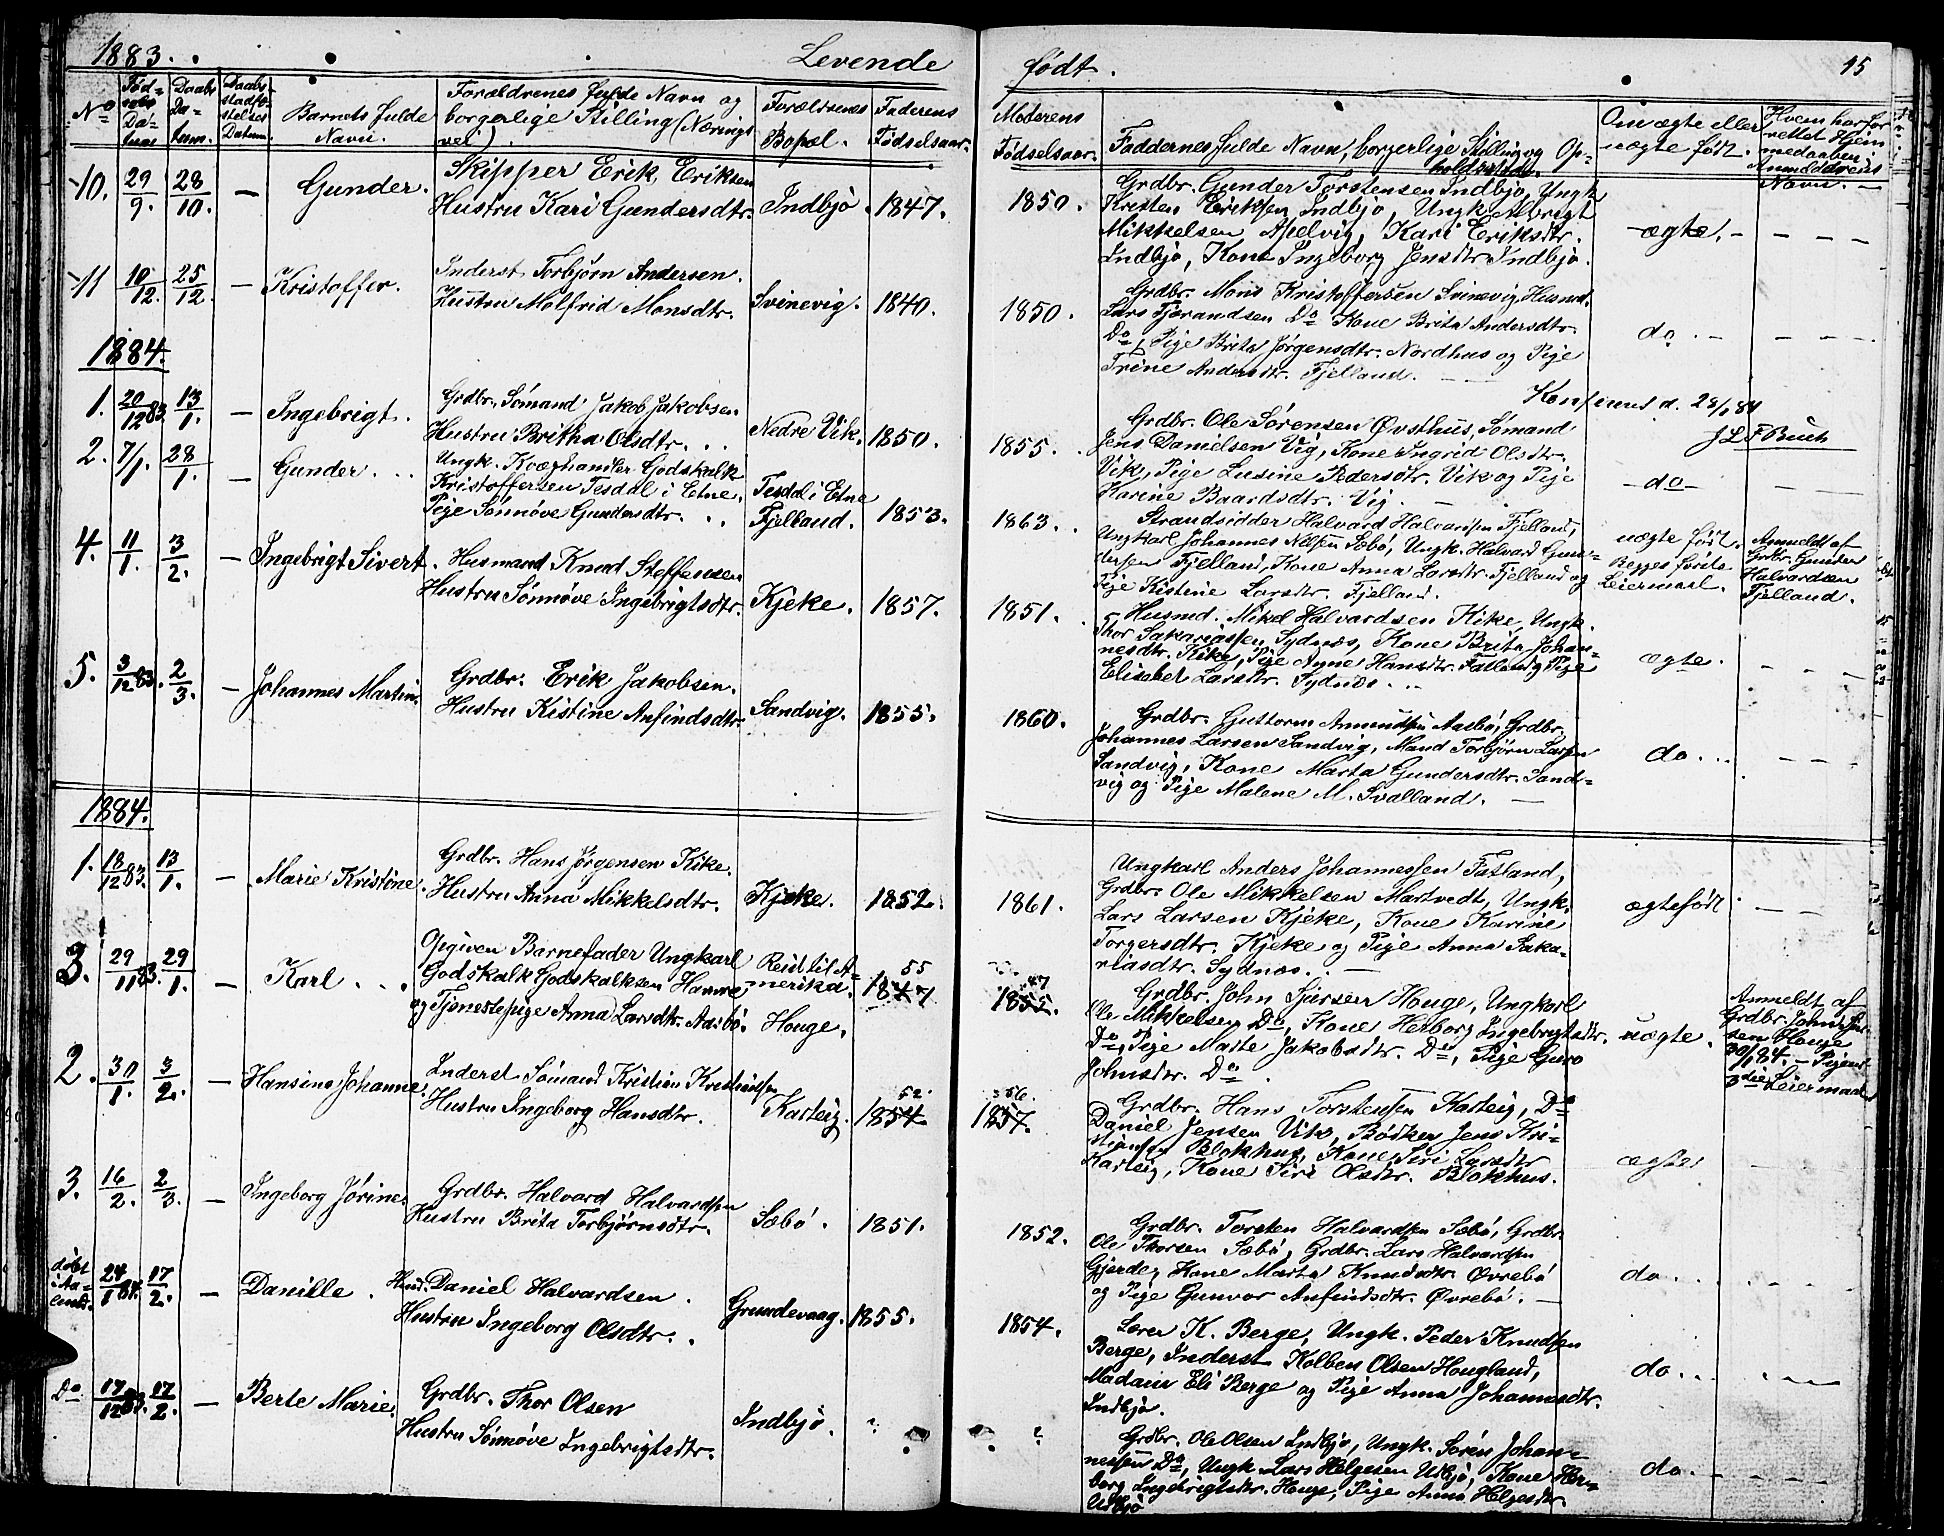 1883. Levende født. 15
No Fødselsdatum Daabsdatum Daabsstadfæstelses Datum. Barnets fulde Navn. Forældrenes fulde Navn og borgerlige Stilling (Næringsvei). Forældrenes Bopæl. Faderens Fødselsaar. Moderens Fødselsaar. Faddernes fulde Navn, borgerlige Stilling og Opholdssted. Om ægte eller uægte født. Hvem har forrettet Hjemmedaaben. Anmelderens Navn.
10. 29/9. 28/10. — Gunder. Skipper Erik Eriksen
Hustru Kari Gundersdtr. Indbjo. 1847. 1850.
Grdbr. Gunder Torstensen Indbjo, Ungk.
Kristen Eriksen Indbjo, Ungk. Albrigt
Mikkelsen Apelvig, Kari Eriksdtr.
Indbjo, Kone Ingeborg Jensdtr Indbjo.
ægte. — — — —
11 10/12. 25/12. — Kristoffer. Inderst Torbjørn Andersen.
Hustru Molfrid Monsdtr. Svinevig. 1840. 1850.
Grdbr. Mons Kristoffersen Svinevig, Husmd.
Lars Tjerandsen Do Kone Brita Andersdtr.
Do, Pige Brita Jørgensdtr. Nordhus og Pige
Trine Andersdtr. Fjelland.
do. — — — —
1884.
Konfirerent d. 28/1 84
J L F Buch
1. 20/12 83 13/1. — Ingebrigt. Grdbr. Sømand Jakob Jakobsen
Hustru Britha Olsdtr. Nedre Vik. 1850. 1855.
Grdbr. Ole Sørensen Øvsthus, Sømand
Jens Danielsen Vig, Kone Ingrid Olsdtr.
Vik, Pige Lusine Pedersdtr. Vik og Pige
Karine Baardsdtr. Vig.
— do —
2. 7/1. 28/1. — Gunder. Ungk. Kvæghandler Godskalk
Kristoffersen Tesdal i Etne.
Pige Sønnøve Gundersdtr. Tesdal i Etne
Fjelland. 1853. 1863.
Strandsidder Halvard Halvardsen Fjelland,
Ungkarl Johannes Nilsen Sæbø, Ungk. Halvard Gundersen Fjelland, Kone Anna Larsdtr. Fjelland og
Pige Kistine Larsdtr. Fjelland.
uægte født.
Begges første
Leiermaal.
Anmeldt af
Grdbr. Gunder
Halvardsen
Fjelland.
4. 11/1. 3/2. — Ingebrigt Sivert. Husmand Knud Steffensen
Hustru Sønnøve Ingebrigtsdtr. Kjeke. 1857. 1851.
Husmd. Mikel Halvardsen Kike, Ungk.
Thor Sakariassen Sydnæs, Kone Brita Johannesdtr. Kike, Pige Anne Hansdtr. Fatland, Pige
Elisabet Larsdtr. Sydnæs.
ægte.
5. 3/12 83. 2/3. — Johannes Martin. Grdbr. Erik Jakobsen.
Hustru Kistine Anfindsdtr. Sandvig. 1855. 1860.
Grdbr. Guttorm Amundsen Aasbø, Grdbr.
Johannes Larsen Sandvig, Mand Torbjørn Larsen
Sandvig, Kone Marta Gundersdtr. Sandvig og Pige Malene M. Svalland.
do.
1884.
1. 18/12 83. 13/1. — Marie Kristine. Grdbr. Hans Jørgensen Kike.
Hustru Anna Mikkelsdtr. Kjeke. 1852. 1861.
Ungkarl Anders Johannessen Fatland,
Grdbr. Ole Mikkelsen Martvedt, Ungk.
Lars Larsen Kjeke, Kone Karine
Torgersdtr. Kjeke og Pige Anna Sakariasdtr. Sydnæs.
ægtefødt
3. 29/11 83. 29/1. — Karl. Opgiven Barnefader Ungkarl
Godskalk Godskalksen Hamre
og Tjenestepige Anna Larsdtr. Aasbø. Reist til Amerika.
Houge. 55 1847 47 1855.
Grdbr. John Sjursen Houge, Ungkarl
Ole Mikkelsen Do, Kone Herborg Ingebrigtsdtr.
Do, Pige Marte Jakobsdtr. Do, Pige Guro
Johnsdtr. Do.
uægte.
Anmeldt af
Grdbr. John Sjursen Houge
30/1 84. — Pigens
3die Leiermaal
2. 30/1. 3/2. — Hansine Johanne. Inderst Sømand Kristian Kristiansen
Hustru Ingeborg Hansdtr. Karteig. 52. 1854. 56. 1857.
Grdbr. Hans Torstensen Karteig, Do
Daniel Jensen Vik, Bødker Jens Kristiansen Blokhus, Kone Siri Larsdtr
Karteig, Kone Siri Olsdtr. Blokhus.
ægte
3. 16/2. 2/3. — Ingeborg Jørine. Grdbr. Halvard Halvardsen
Hustru Brita Torbjørnsdtr. Sæbø. 1851. 1852.
Grdbr. Torsten Halvardsen Sæbø, Grdbr.
Ole Thorsen Sæbø, Grdbr. Lars Halvardsen
Gjerde, Kone Marta Knudsdtr. Øvrebø
og Pige Gunvor Anfindsdtr. Øvrebø. —
do.
døbt
i Aalund. 24/1 84. 17/2. — Danille. Husd. Daniel Halvardsen.
Hustru Ingeborg Olsdtr. Grundevaag. 1855. 1854.
Lærer K. Berge, Ungk. Peder Knudsen
Berge, Inderst Kolben Olsen Hougland,
Madam Eli Berge og Pige Anna Johannesdtr.
Indbjo.
do.
Do 17/12 83. 17/2. — Berte Marie. Grdbr. Thor Olsen
Hustru Sønnøve Ingebrigtsdtr. Indbjo. ? ?
Grdbr. Ole Olsen Indbjo, Ungk. Søren Johannessen Do, Ungk. Lars Helgesen Utbjo, Kone Herborg Ingebrigtsdtr. Houge, Pige Anna Helgesdtr
Utbjo
do.